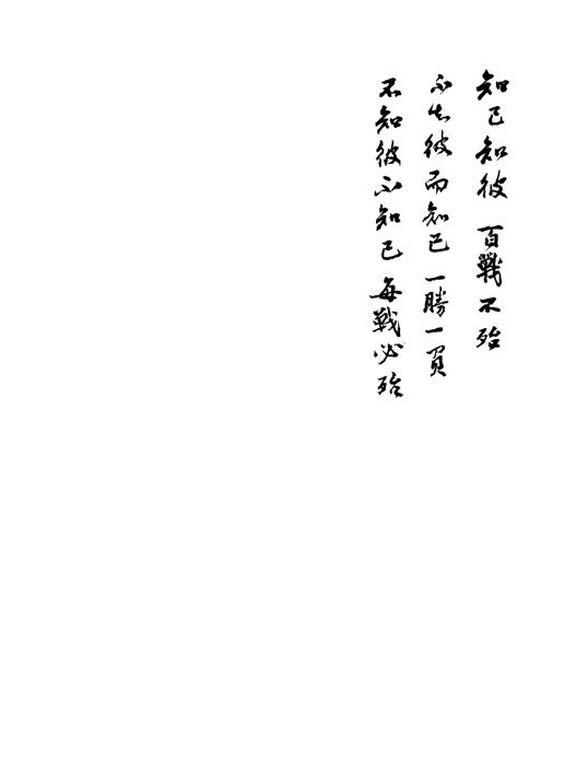 知己知彼 百戰不殆
不知彼而知己 一勝一負
不知彼不知己 每戰必殆